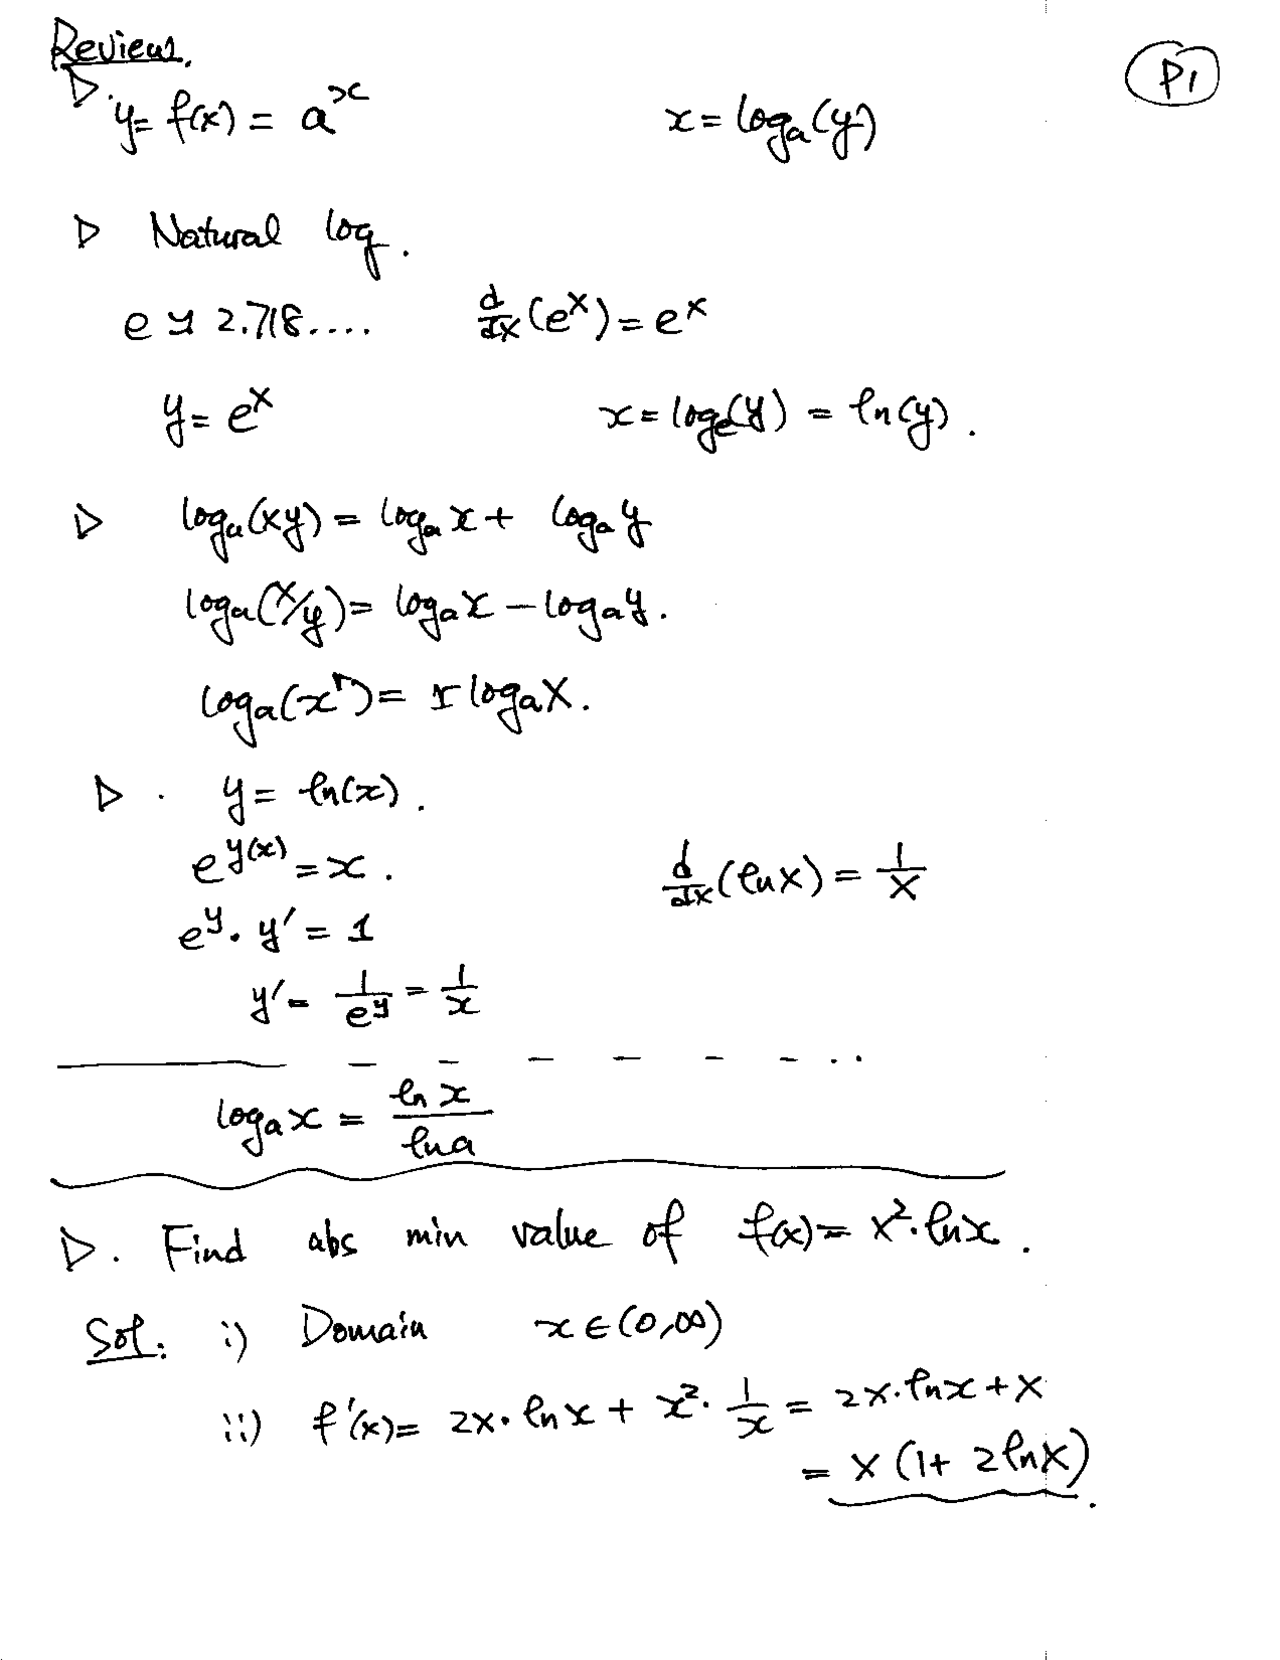 Review.
P1
▷. y = f(x) = a^x    x = log_a(y)
▷ Natural log.
e ≈ 2.718....    d/dx (e^x) = e^x
y = e^x    x = log_e(y) = ln(y).
▷ log_a(xy) = log_a x + log_a y
log_a(x/y) = log_a x − log_a y.
log_a(x^r) = r log_a x.
▷. y = ln(x).
e^{y(x)} = x.    d/dx (ln x) = 1/x
e^y · y' = 1
y' = 1/e^y = 1/x
log_a x = ln x / ln a
▷. Find abs min value of f(x) = x²·ln x.
Sol: i) Domain x ∈ (0,∞)
ii) f'(x) = 2x·ln x + x²·1/x = 2x·ln x + x
= x (1 + 2 ln x).